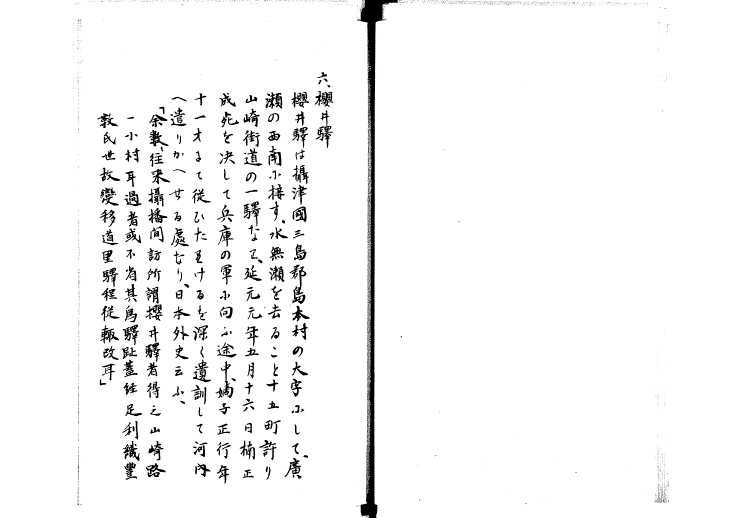 六、櫻井驛
櫻井驛は攝津國三島郡島本村の大字にして、廣
瀬の西南に接す、水無瀬を去ること十五町許り
山崎街道の一驛なり、延元元年五月十六日楠正
成死を决して兵庫の軍に向ふ途中、嫡子正行年
十一才にて従ひたまけるを深く遺訓して河内
へ遣りかへせる處なり、日本外史云ふ、
「余數、往来攝播間訪所謂櫻井驛者得之山崎路
一小村耳過者或不省其爲驛趾蓋經足利織豊
數氏世故變移道里驛程從輙改耳」